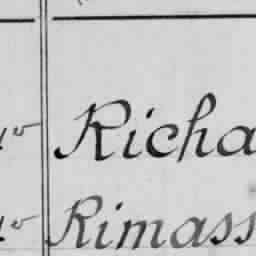 Richa
Rimass